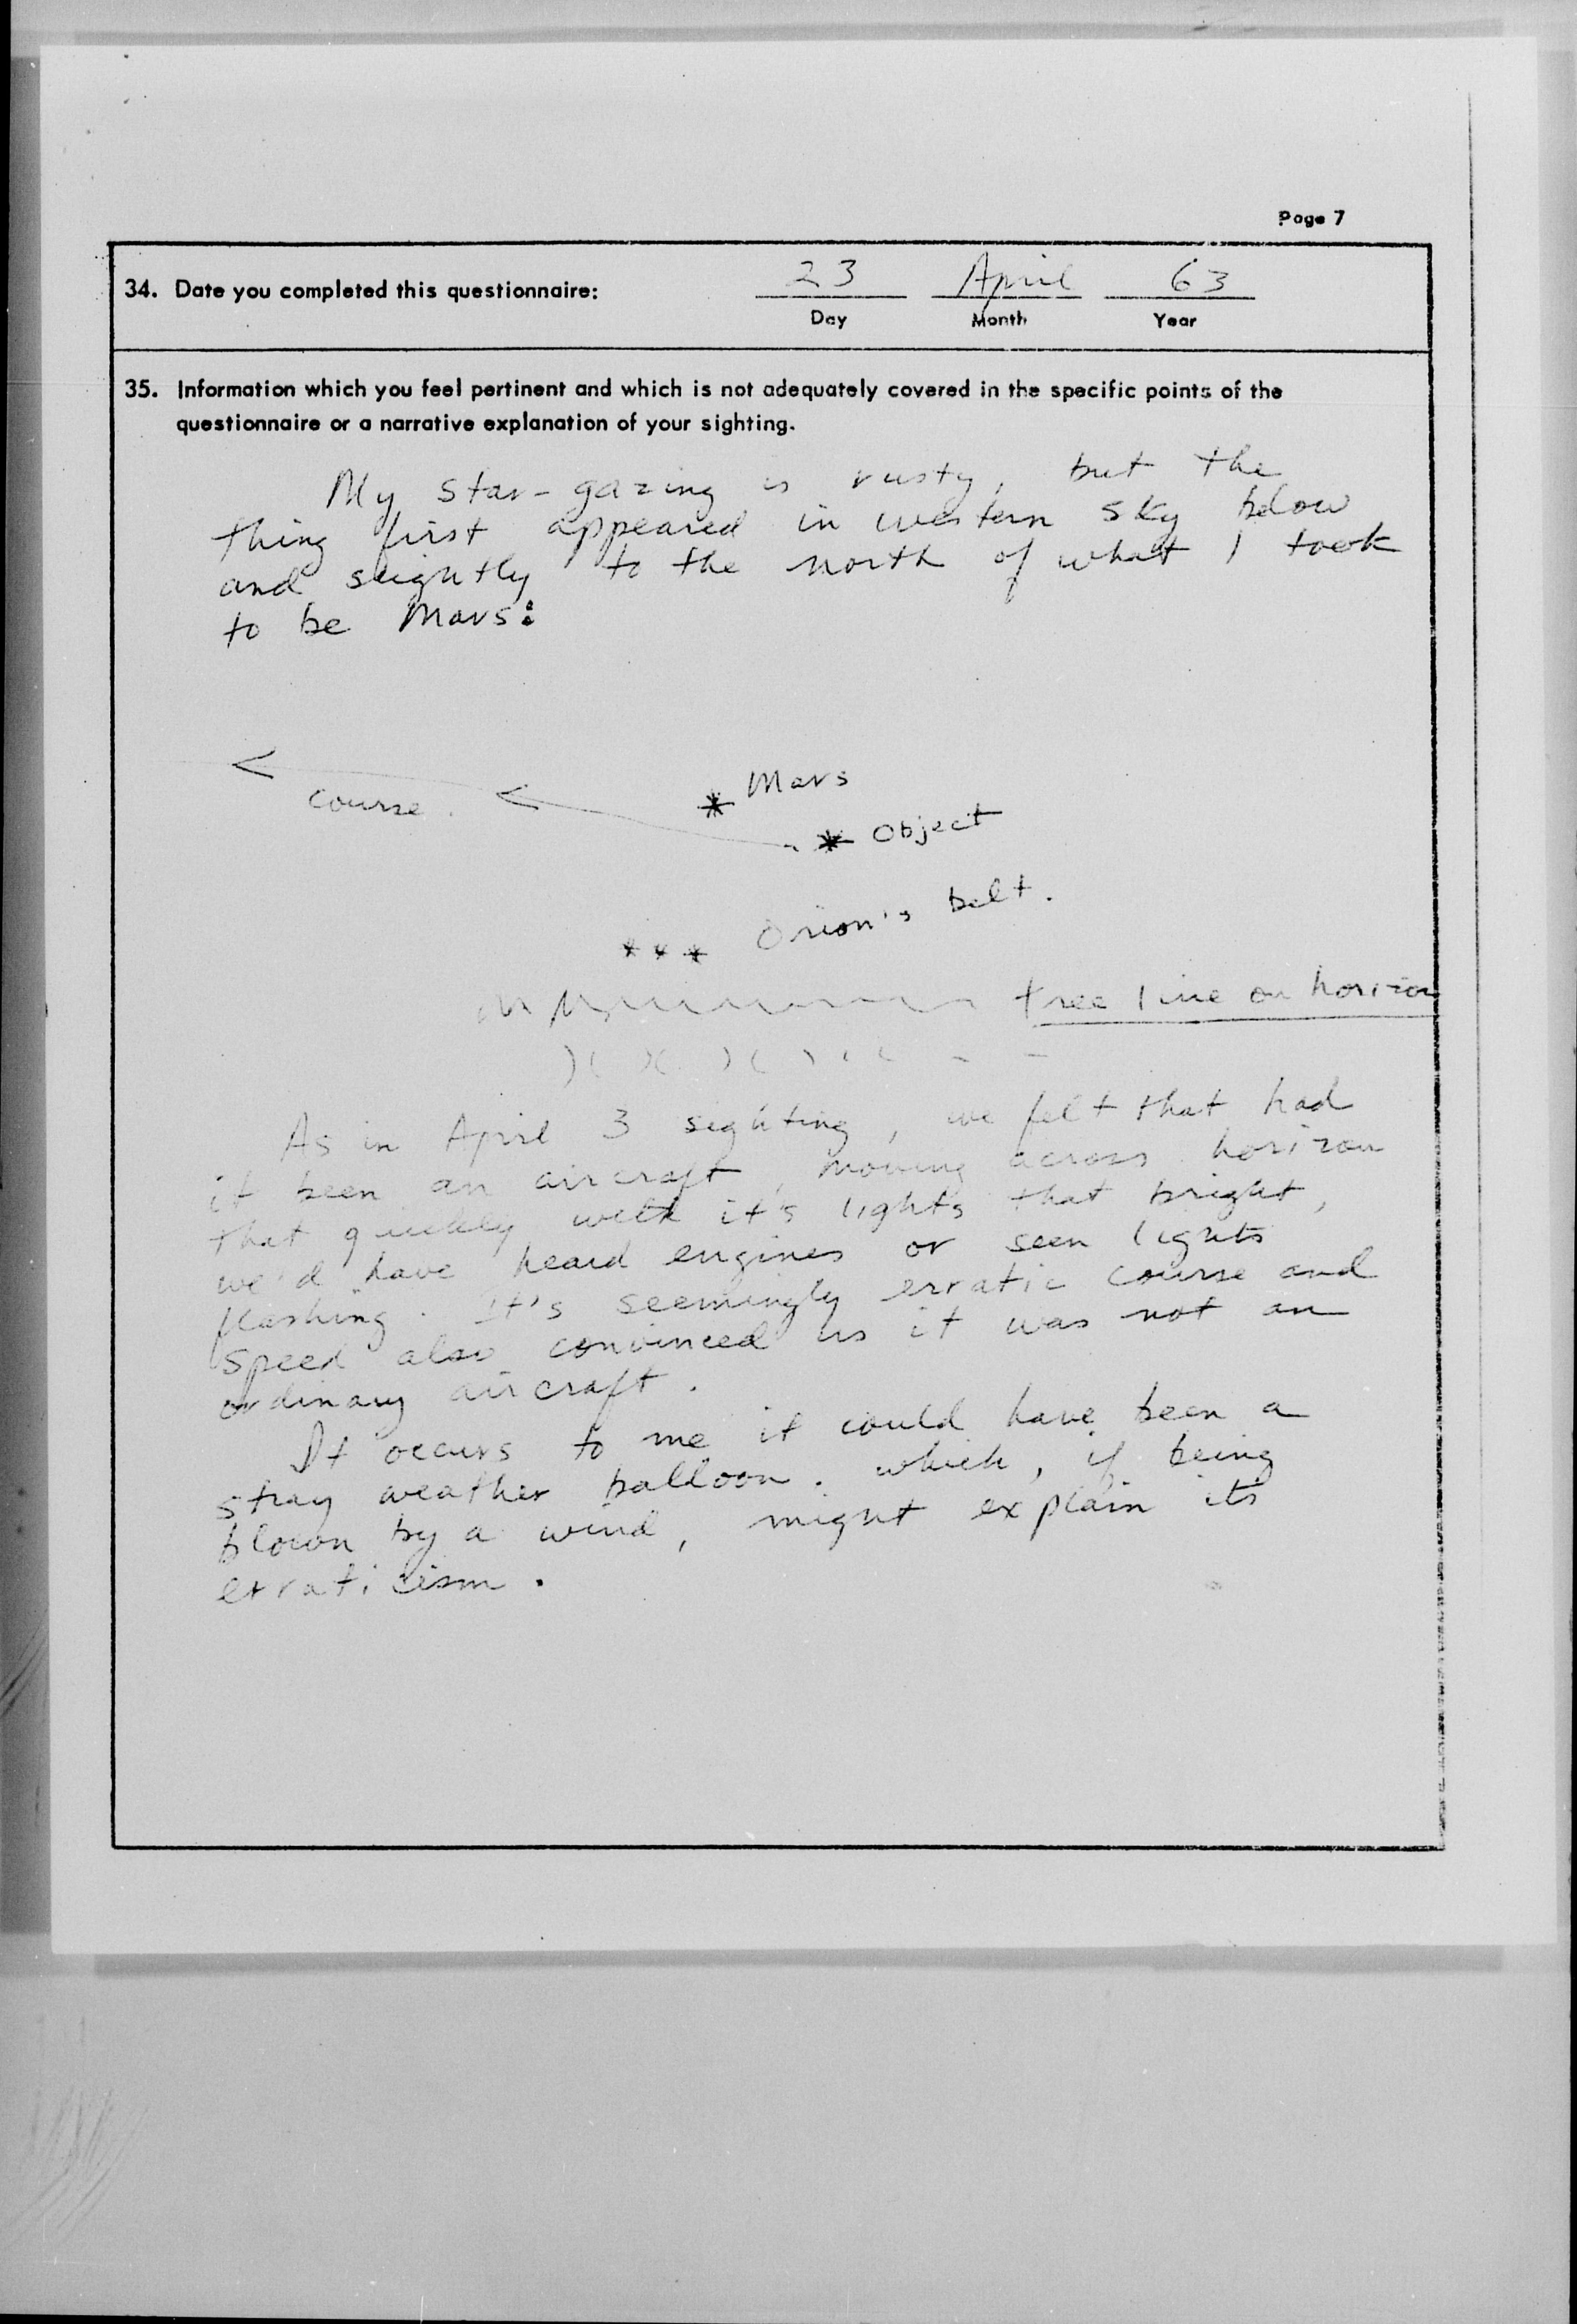 Page 7
34. Date you completed this questionnaire: 23 April 63
Day Month Year
35. Information which you feel pertinent and which is not adequately covered in the specific points of the
questionnaire or a narrative explanation of your sighting.
My star-gazing is rusty, but the
thing first appeared in western sky below
and slightly to the north of what I took
to be Mars:
Mars
course.
Object
Orion's belt.
tree line on horizon
As in April 3 sighting, we felt that had
it been an aircraft, moving across horizon
that quickly with it's lights that bright,
we'd have heard engines or seen lights
flashing. It's seemingly erratic course and
speed also convinced us it was not an
ordinary aircraft.
It occurs to me it could have been a
stray weather balloon. which, if being
blown by a wind, might explain its
erraticism.